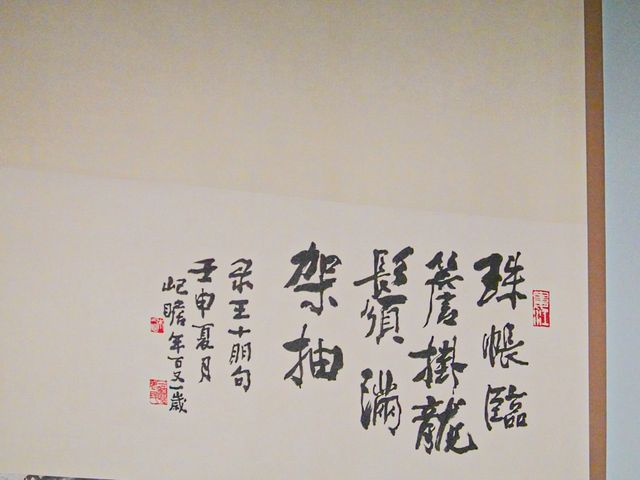 珠帳臨
簷掛龍
鬚滿
架抽
宋王十朋句
壬申夏月
屺瞻年百又一歲